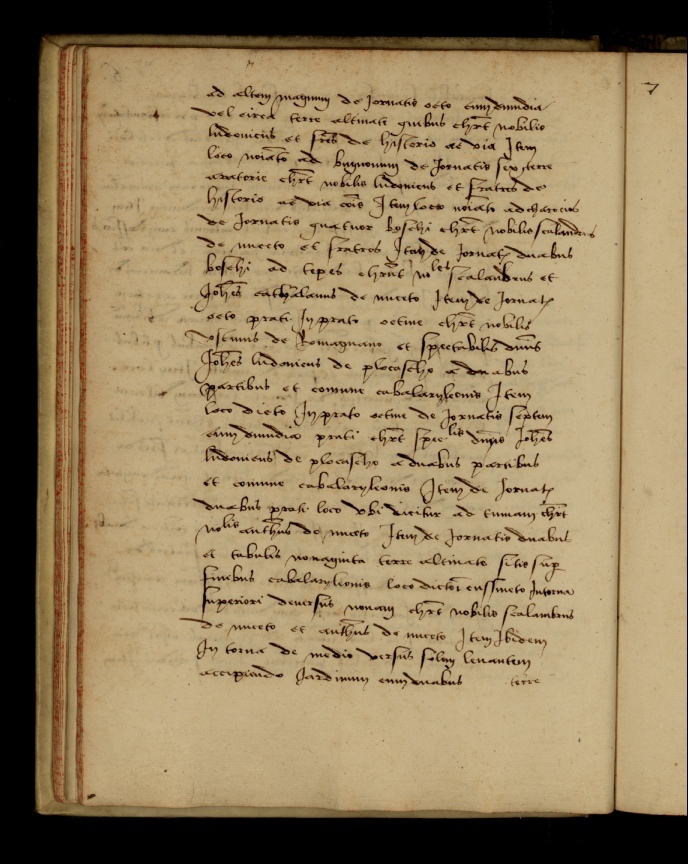 ad altem magnum de Jornatis octo cum dimidia
vel circa terre altinate quibus chrt nobilis
ludonicus et frēs de historio ac via Item
loco noiato ad bugnonum de Jornatis sex terre
aratorie chrt nobilis ludonicus et fratres de
historio ac via cōis Item loco noiato ad
de Jornatis quatuor boschi chrt nobilis scalambrus
de nuceto et fratres Item de Jornat duabus
boschi ad tepes chrūt nōles scalambrus et
Johēs cathalanus de nuceto Item de Jornat
octo prati In prato octine chrt nobilis
de Romagnano et spectabilis dnūs
Johēs ludonicus de plocascho a duabus
partibus et comune cabalaryleonis Item
loco dicto In prato octine de Jornatis septem
cum dimidia prati chrt spēlis dnūs Johēs
ludonicus de plocascho a duabus partibus
et comune cabalaryleonis Item de Jornat
duabus prati loco vbi dicitur ad tumam chrt
nolis anthūs de nuceto Item de Jornatis duabus
et tabulis nonaginta terre altinate sitis sup
finibus cabalaryleonis loco dicto In torna
superiori deversus nonam chrt nobilis scalambrus
de nuceto et anthūs de nuceto Item Ibidem
In torna de medio versus solem levantem
accipiendo Jardinum cum duabus terre
7